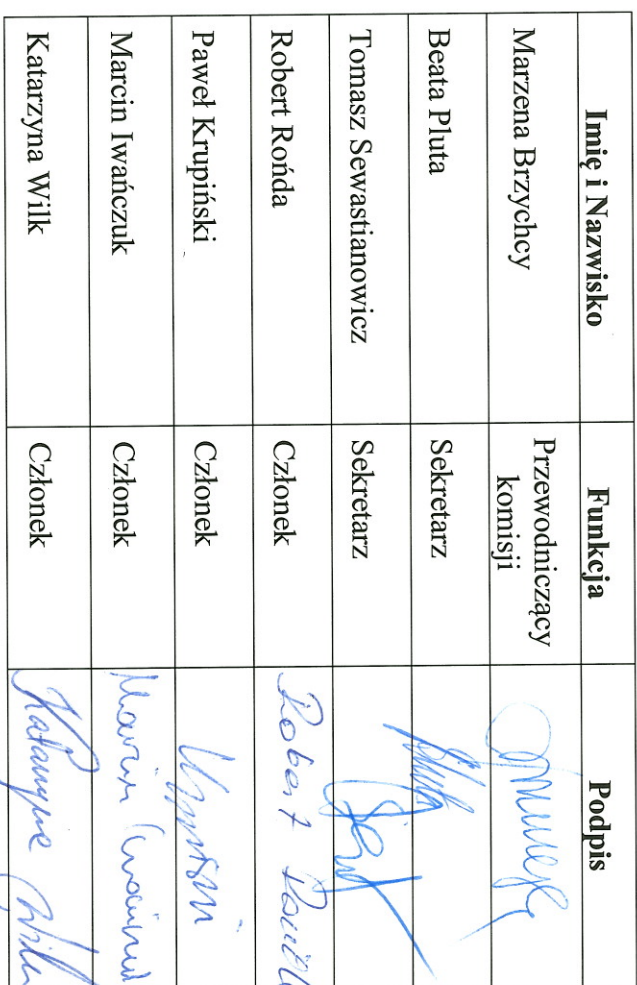 Imię i Nazwisko Funkcja Podpis
Marzena Brzychcy Przewodniczący
komisji
Beata Pluta Sekretarz
Tomasz Sewastianowicz Sekretarz
Robert Rońda Członek Robert
Paweł Krupiński Członek
Marcin Iwańczuk Członek Marcin
Katarzyna Wilk Członek Katarzyna